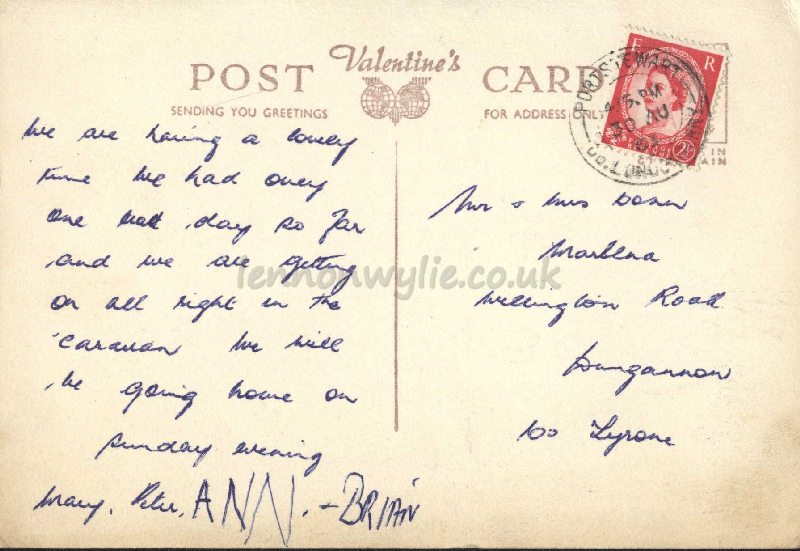 POST Valentine's CARD
SENDING YOU GREETINGS
FOR ADDRESS ONLY
E R
2½
PORTSTEWART
4.15 PM
30 AU
CO. LONDON
We are having a lovely
time We had only
one bad day so far
and we are getting
on all right in the
caravan We will
be going home on
Sunday evening
Mary, Peter, ANN. - BRIAN
Mr & Mrs
Marlena
Wellington Road
Dungannon
Co Tyrone
lennonwylie.co.uk